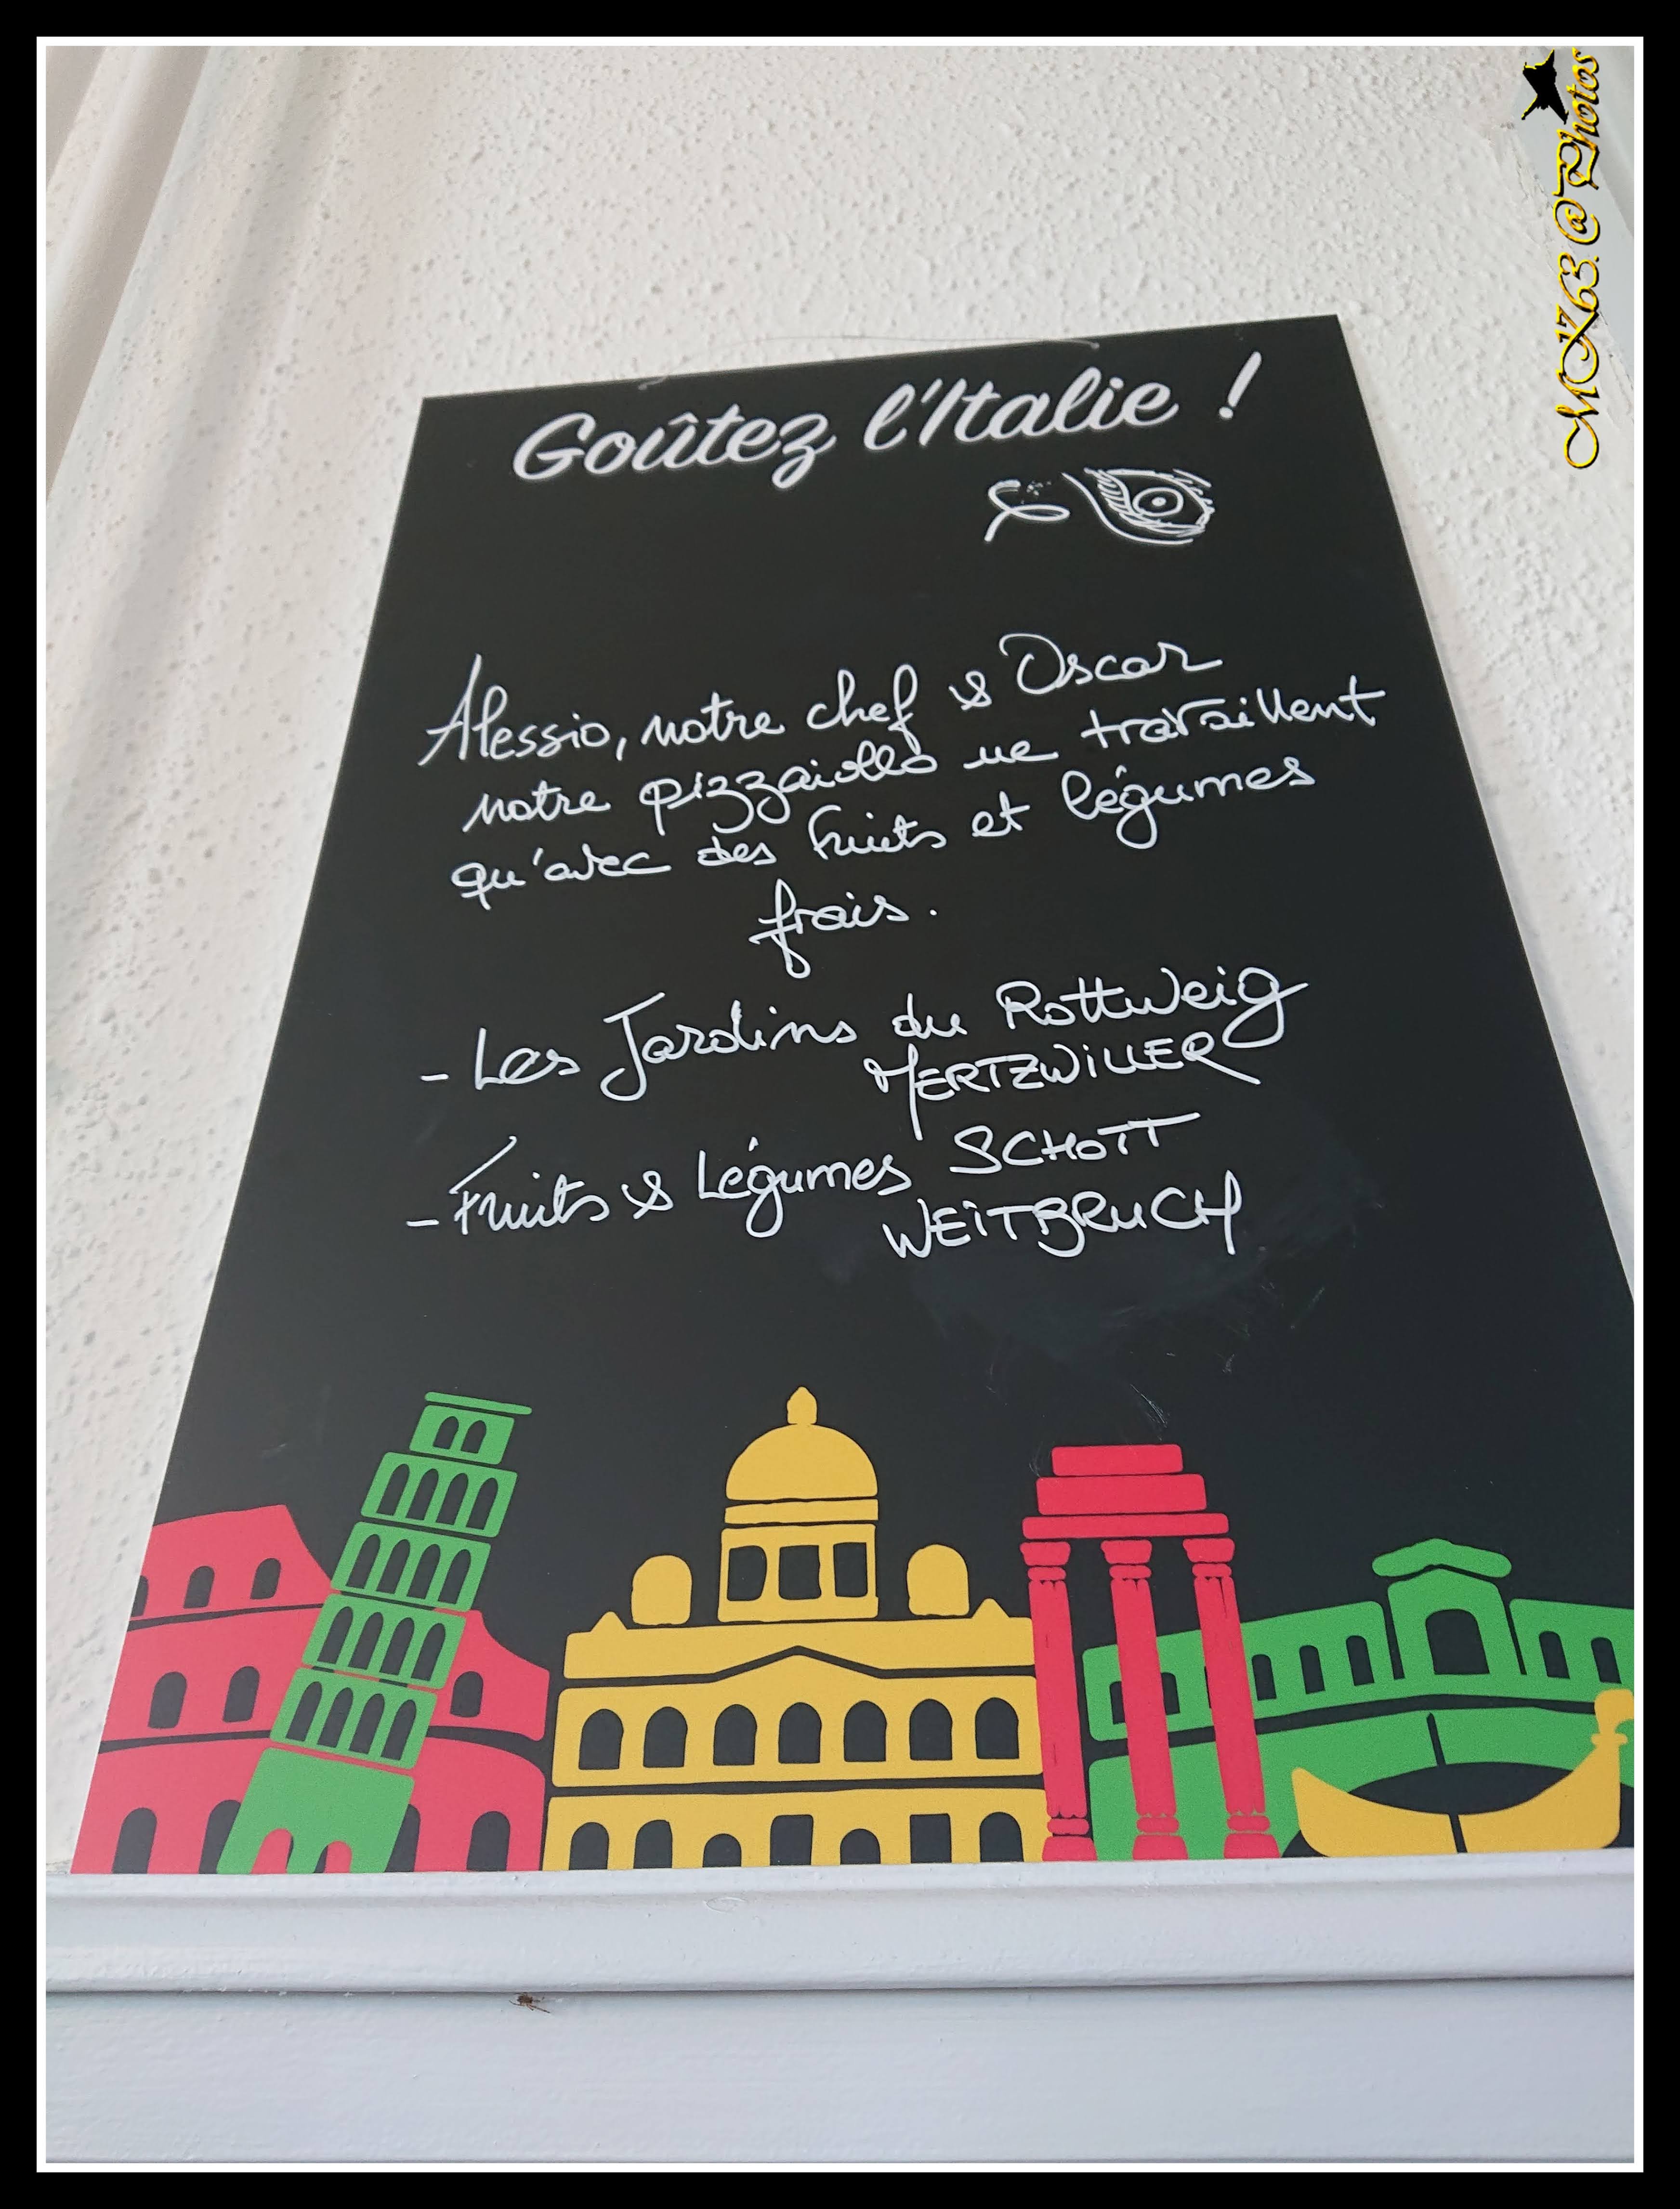 MK63.@Photos
Goûtez l'Italie !
Alessio, notre chef & Oscar
notre pizzaiollo ne travaillent
qu'avec des fruits et légumes
frais.
- Les Jardins du Rottweig
MERTZWILLER
- Fruits & Légumes SCHOTT
WEITBRUCH